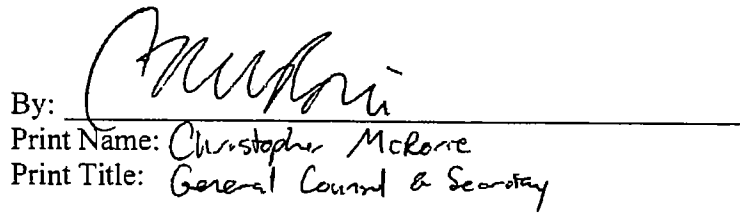 By:
Print Name: Christopher McRorie
Print Title: General Counsel & Secretary